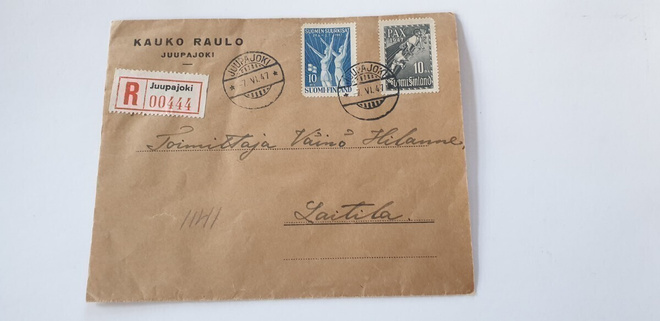 KAUKO RAULO
JUUPAJOKI
R Juupajoki
00444
JUUPAJOKI
7. VI. 47
SUOMEN SUURKISAT
10
SUOMI-FINLAND
JUUPAJOKI
7. VI. 47
PAX
1947
10
Suomi Finland
Toimittaja Väinö Hilanne,
Laitila.